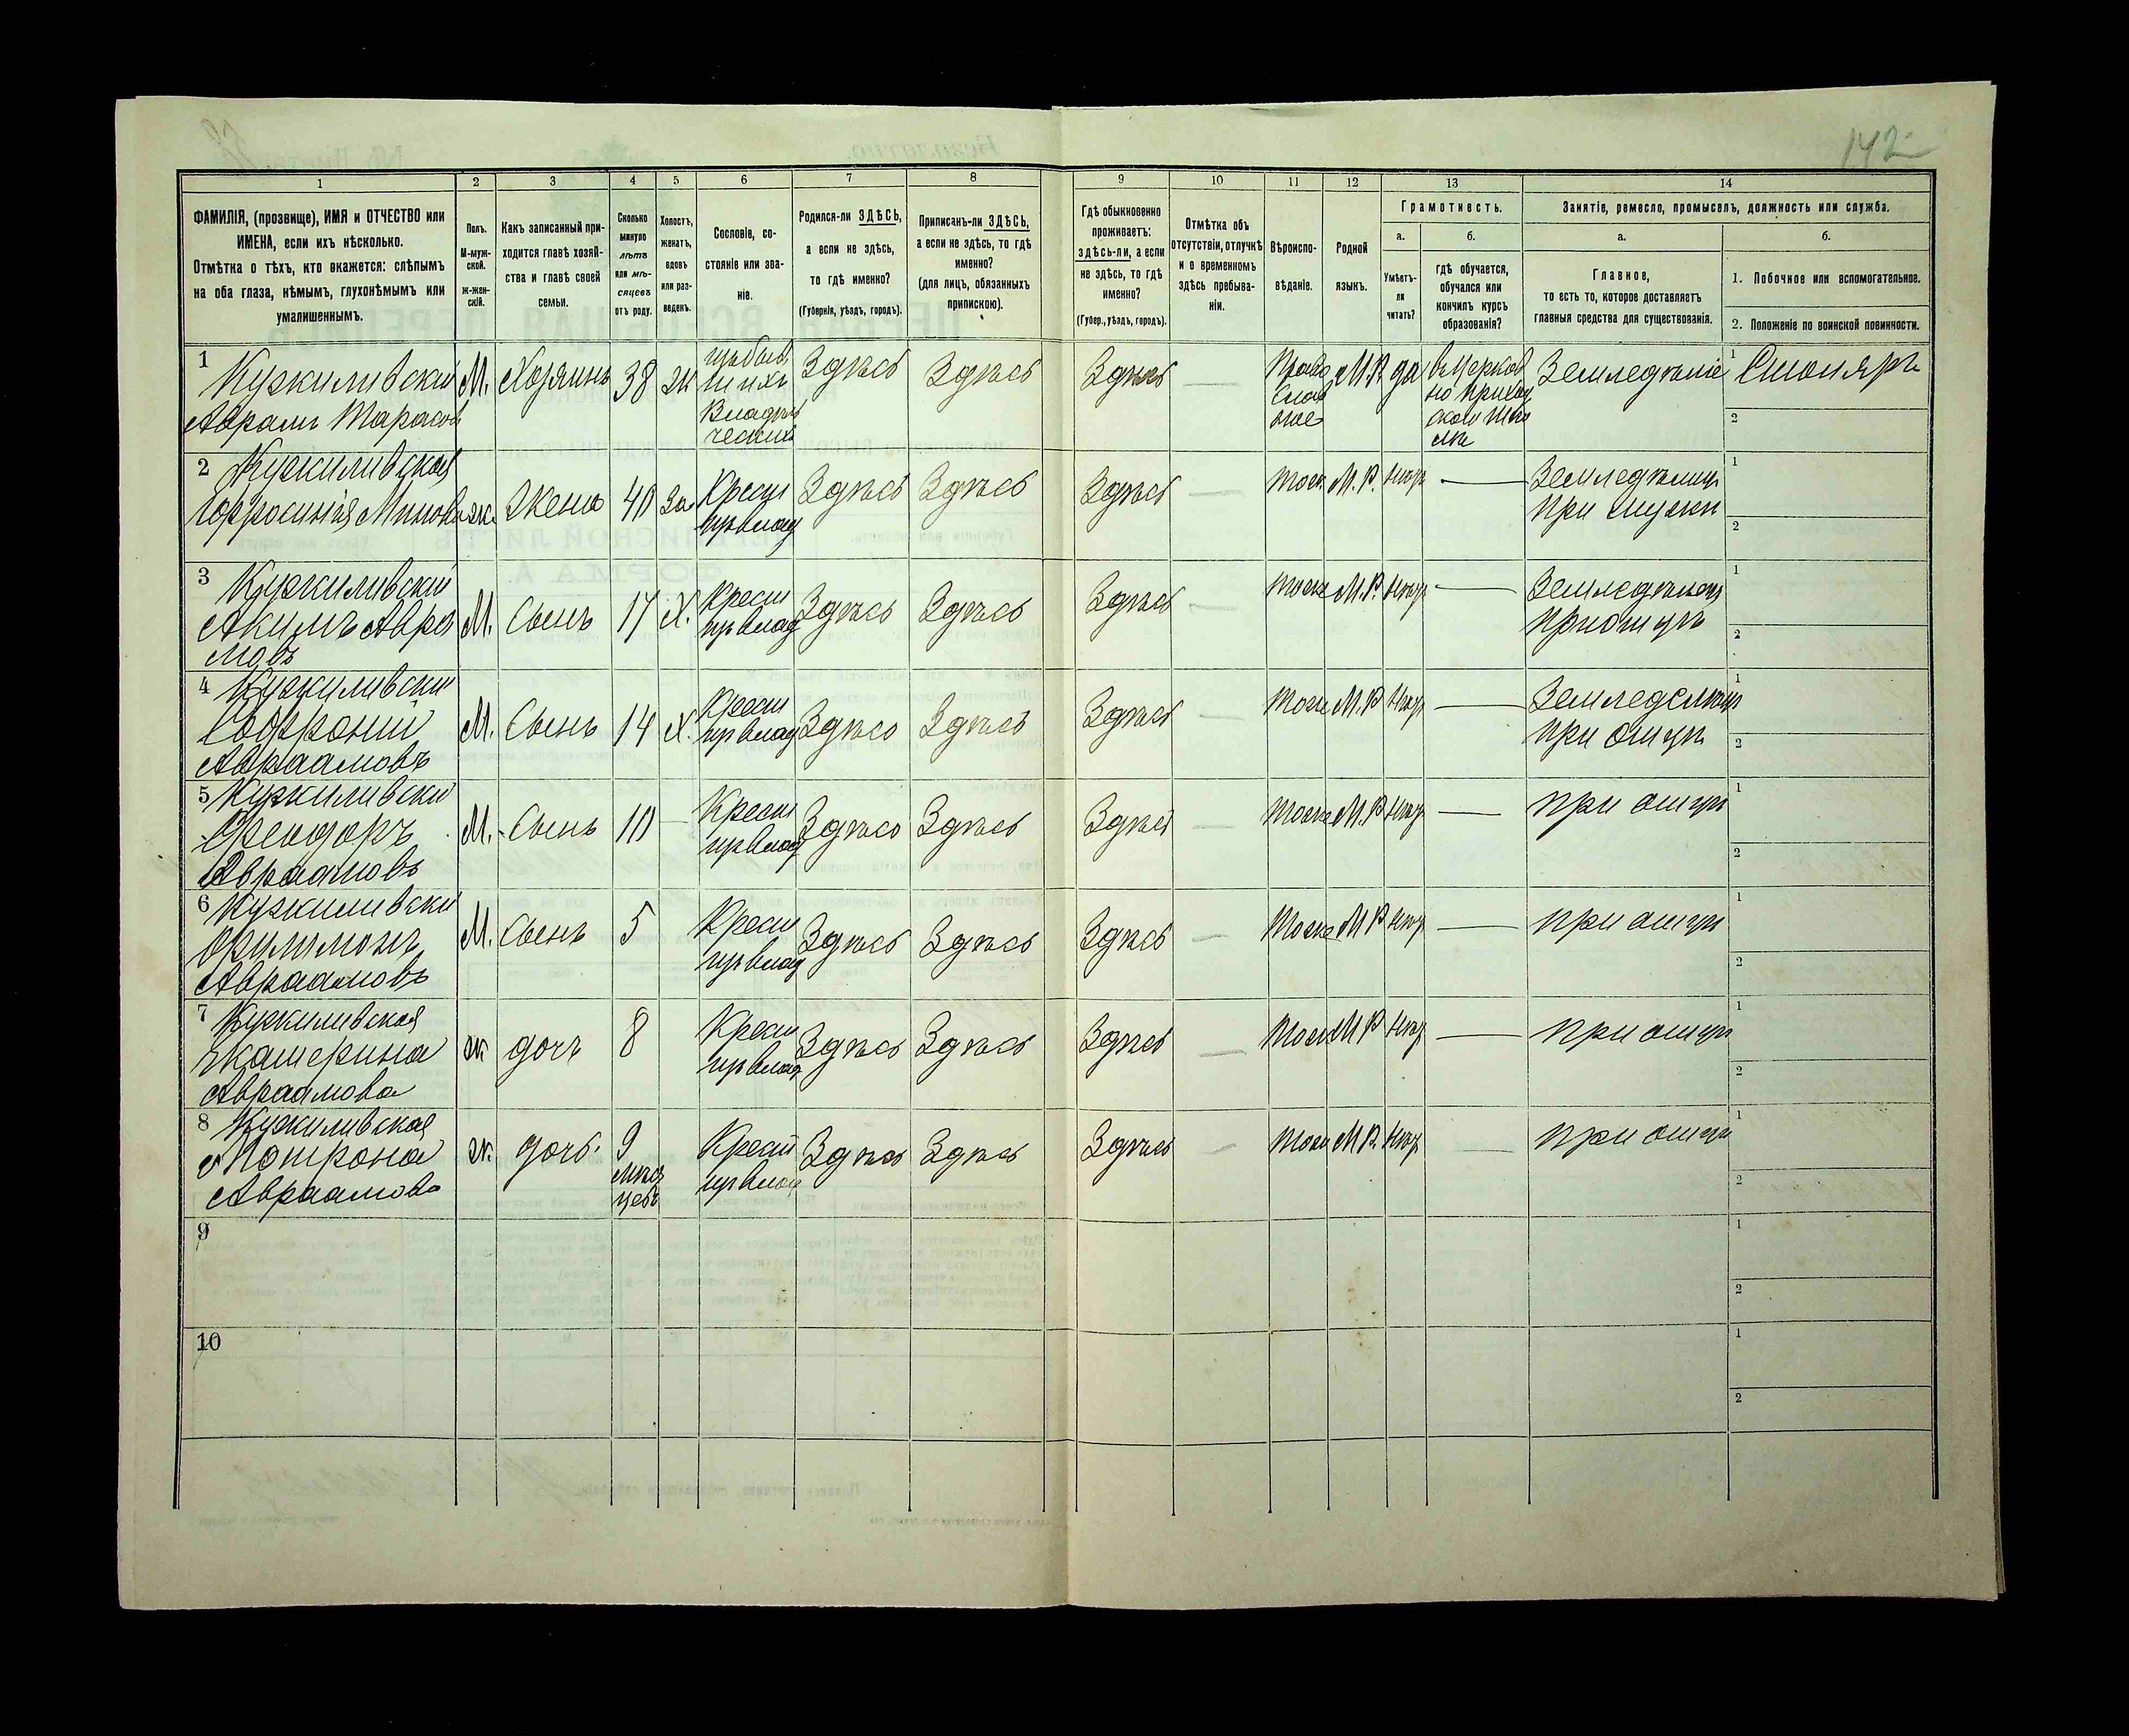 142
1 2 3 4 5 6 7 8 9 10 11 12 13 14
ФАМИЛІЯ, (прозвище), ИМЯ и ОТЧЕСТВО или
ИМЕНА, если ихъ нѣсколько.
Отмѣтка о тѣхъ, кто окажется: слѣпымъ
на оба глаза, нѣмымъ, глухонѣмымъ или
умалишеннымъ.
Полъ.
М-муж-
ской.
ж-жен-
скій.
Какъ записанный при-
ходится главѣ хозяй-
ства и главѣ своей
семьи.
Сколько
минуло
лѣтъ
или мѣ-
сяцевъ
отъ роду.
Холостъ,
женатъ,
вдовъ
или раз-
веденъ.
Сословіе, со-
стояніе или зва-
ніе.
Родился-ли ЗДѢСЬ,
а если не здѣсь,
то гдѣ именно?
(Губернія, уѣздъ, городъ).
Приписанъ-ли ЗДѢСЬ,
а если не здѣсь, то гдѣ
именно?
(для лицъ, обязанныхъ
припискою).
Гдѣ обыкновенно
проживаетъ:
здѣсь-ли, а если
не здѣсь, то гдѣ
именно?
(Губер., уѣздъ, городъ).
Отмѣтка объ
отсутствіи, отлучкѣ
и о временномъ
здѣсь пребыва-
ніи.
Вѣроиспо-
вѣданіе.
Родной
языкъ.
Грамотность.
а.
Умѣетъ-
ли
читать?
б.
гдѣ обучается,
обучался или
кончилъ курсъ
образованія?
Занятіе, ремесло, промыселъ, должность или служба.
а.
Главное,
то есть то, которое доставляетъ
главныя средства для существованія.
б.
1. Побочное или вспомогательное.
2. Положеніе по воинской повинности.
1 Кужиливский
Аврамъ Тарасов
М. Хозяинъ 38 ж
Владѣль
ческихъ
Здѣсь Здѣсь Здѣсь —
Право
слав
ное
М.Р. да
в церков
но приход
ской шко
лѣ
Земледѣліе
1 Столяръ
2
2 Кужиливская
Евфросинія Минова
ж. Жена 40 за
Крест
Здѣсь Здѣсь Здѣсь — тоже М.Р. нѣт —
Земледѣлица
при мужѣ
1
2
3 Кужиливский
Акимъ Авра
мовъ
М. Сынъ 17 Х.
Крест
Здѣсь Здѣсь Здѣсь — тоже М.Р. нѣт —
Земледѣлец
при отцѣ
1
2
4 Кужиливский
Софроний
Авраамовъ
М. Сынъ 14 Х.
Крест
Здѣсь Здѣсь Здѣсь — тоже М.Р. нѣт —
Земледелец
при отцѣ
1
2
5 Кужиливский
Феодоръ
Авраамовъ
М. Сынъ 10 —
Крест
Здѣсь Здѣсь Здѣсь — тоже М.Р. нѣт —
при отцѣ
1
2
6 Кужиливский
Филимонъ
Авраамовъ
М. Сынъ 5
Крест
Здѣсь Здѣсь Здѣсь — тоже М.Р. нѣт —
при отцѣ
1
2
7 Кужиливская
Екатерина
Авраамова
ж дочъ 8
Крест
Здѣсь Здѣсь Здѣсь — тоже М.Р. нѣт —
при отцѣ
1
2
8 Кужиливская
Мотрона
Авраамова
ж. дочь. 9
мѣся
цевъ
Крест
Здѣсь Здѣсь Здѣсь — тоже М.Р. нѣт —
при отцѣ
1
2
9
1
2
10
1
2